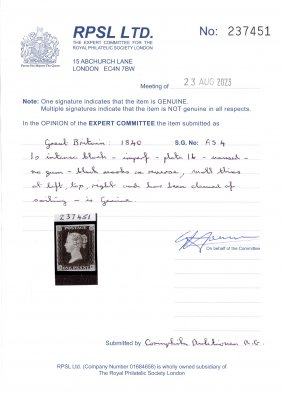 RPSL LTD.
THE EXPERT COMMITTEE FOR THE
ROYAL PHILATELIC SOCIETY LONDON
No: 237451
15 ABCHURCH LANE
LONDON EC4N 7BW
Meeting of 23 AUG 2023
Note: One signature indicates that the item is GENUINE.
Multiple signatures indicate that the item is NOT genuine in all respects.
In the OPINION of the EXPERT COMMITTEE the item submitted as
Great Britain: 1840 S.G. No: AS 4
1d intense black - imperf - plate 1b - unused -
no gum - black marks on reverse, small thins
at left, top, right and has been cleaned of
soiling - is Genuine.
237451
POSTAGE
ONE PENNY
On behalf of the Committee
Submitted by Corinphila A.G.
RPSL LTD. (Company Number 01684658) is wholly owned subsidiary of
The Royal Philatelic Society London